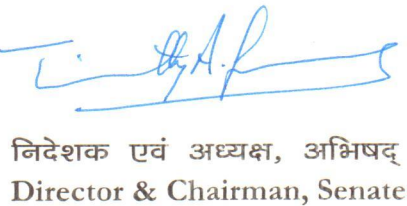 निदेशक एवं अध्यक्ष, अभिषद्
Director & Chairman, Senate